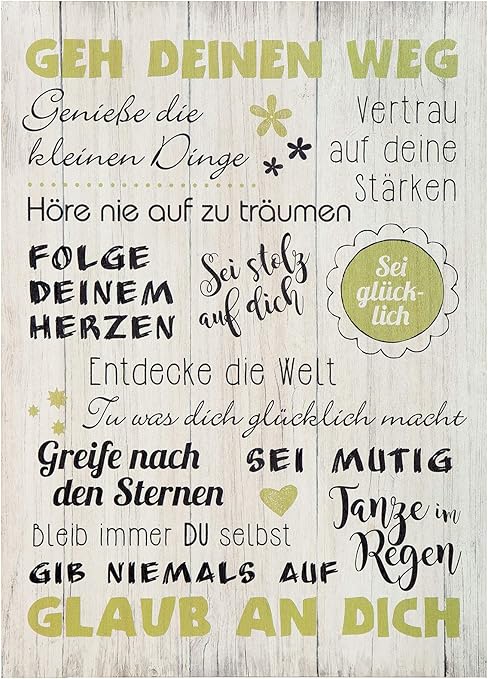 GEH DEINEN WEG
Genieße die
kleinen Dinge
Vertrau
auf deine
Stärken
Höre nie auf zu träumen
FOLGE
DEINEM
HERZEN
Sei stolz
auf dich
Sei
glück-
lich
Entdecke die Welt
Tu was dich glücklich macht
Greife nach
den Sternen
SEI MUTIG
Bleib immer DU selbst
Tanze im
Regen
GIB NIEMALS AUF
GLAUB AN DICH